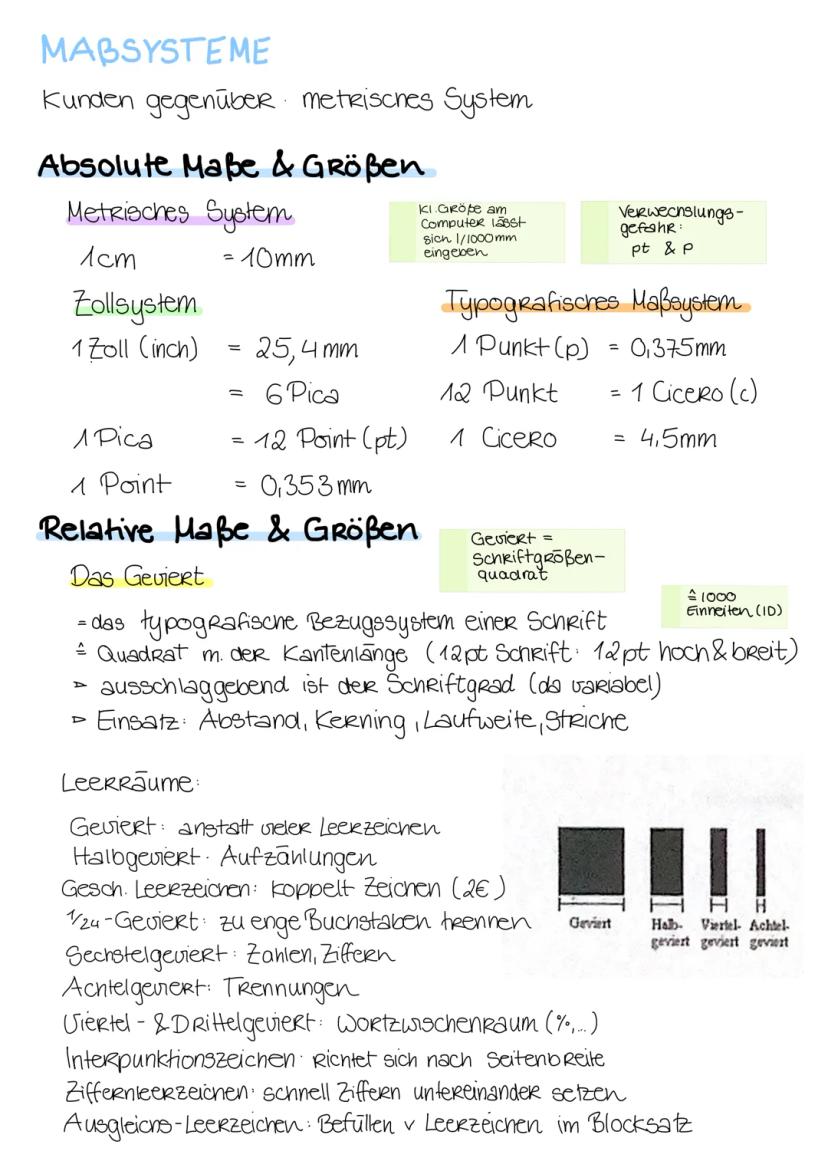 MAßSYSTEME
Kunden gegenüber: metrisches System
Absolute Maße & Größen
Metrisches System
1cm = 10mm
Kl. Größe am
Computer lässt
sich 1/1000mm
eingeben
Verwechslungs-
gefahr:
pt & p
Zollsystem
1 Zoll (inch) = 25,4 mm
= 6 Pica
1 Pica = 12 Point (pt)
1 Point = 0,353 mm
Typografisches Maßsystem
1 Punkt (p) = 0,375mm
12 Punkt = 1 Cicero (c)
1 Cicero = 4,5mm
Relative Maße & Größen
Geviert =
Schriftgrößen-
quadrat
Das Geviert
≙ 1000
Einheiten (ID)
= das typografische Bezugssystem einer Schrift
≙ Quadrat m. der Kantenlänge (12pt Schrift: 12pt hoch & breit)
▹ ausschlaggebend ist der Schriftgrad (da variabel)
▹ Einsatz: Abstand, Kerning, Laufweite, Striche
Leerräume:
Geviert: anstatt vieler Leerzeichen
Halbgeviert: Aufzählungen
Gesch. Leerzeichen: koppelt Zeichen (2€)
1/24-Geviert: zu enge Buchstaben trennen
Sechstelgeviert: Zahlen, Ziffern
Achtelgeviert: Trennungen
Viertel- & Drittelgeviert: Wortzwischenraum (%,...)
Interpunktionszeichen: richtet sich nach Seitenbreite
Ziffernleerzeichen: schnell Ziffern untereinander setzen
Ausgleichs-Leerzeichen: Befüllen v Leerzeichen im Blocksatz
Geviert Halb- Viertel- Achtel-
geviert geviert geviert